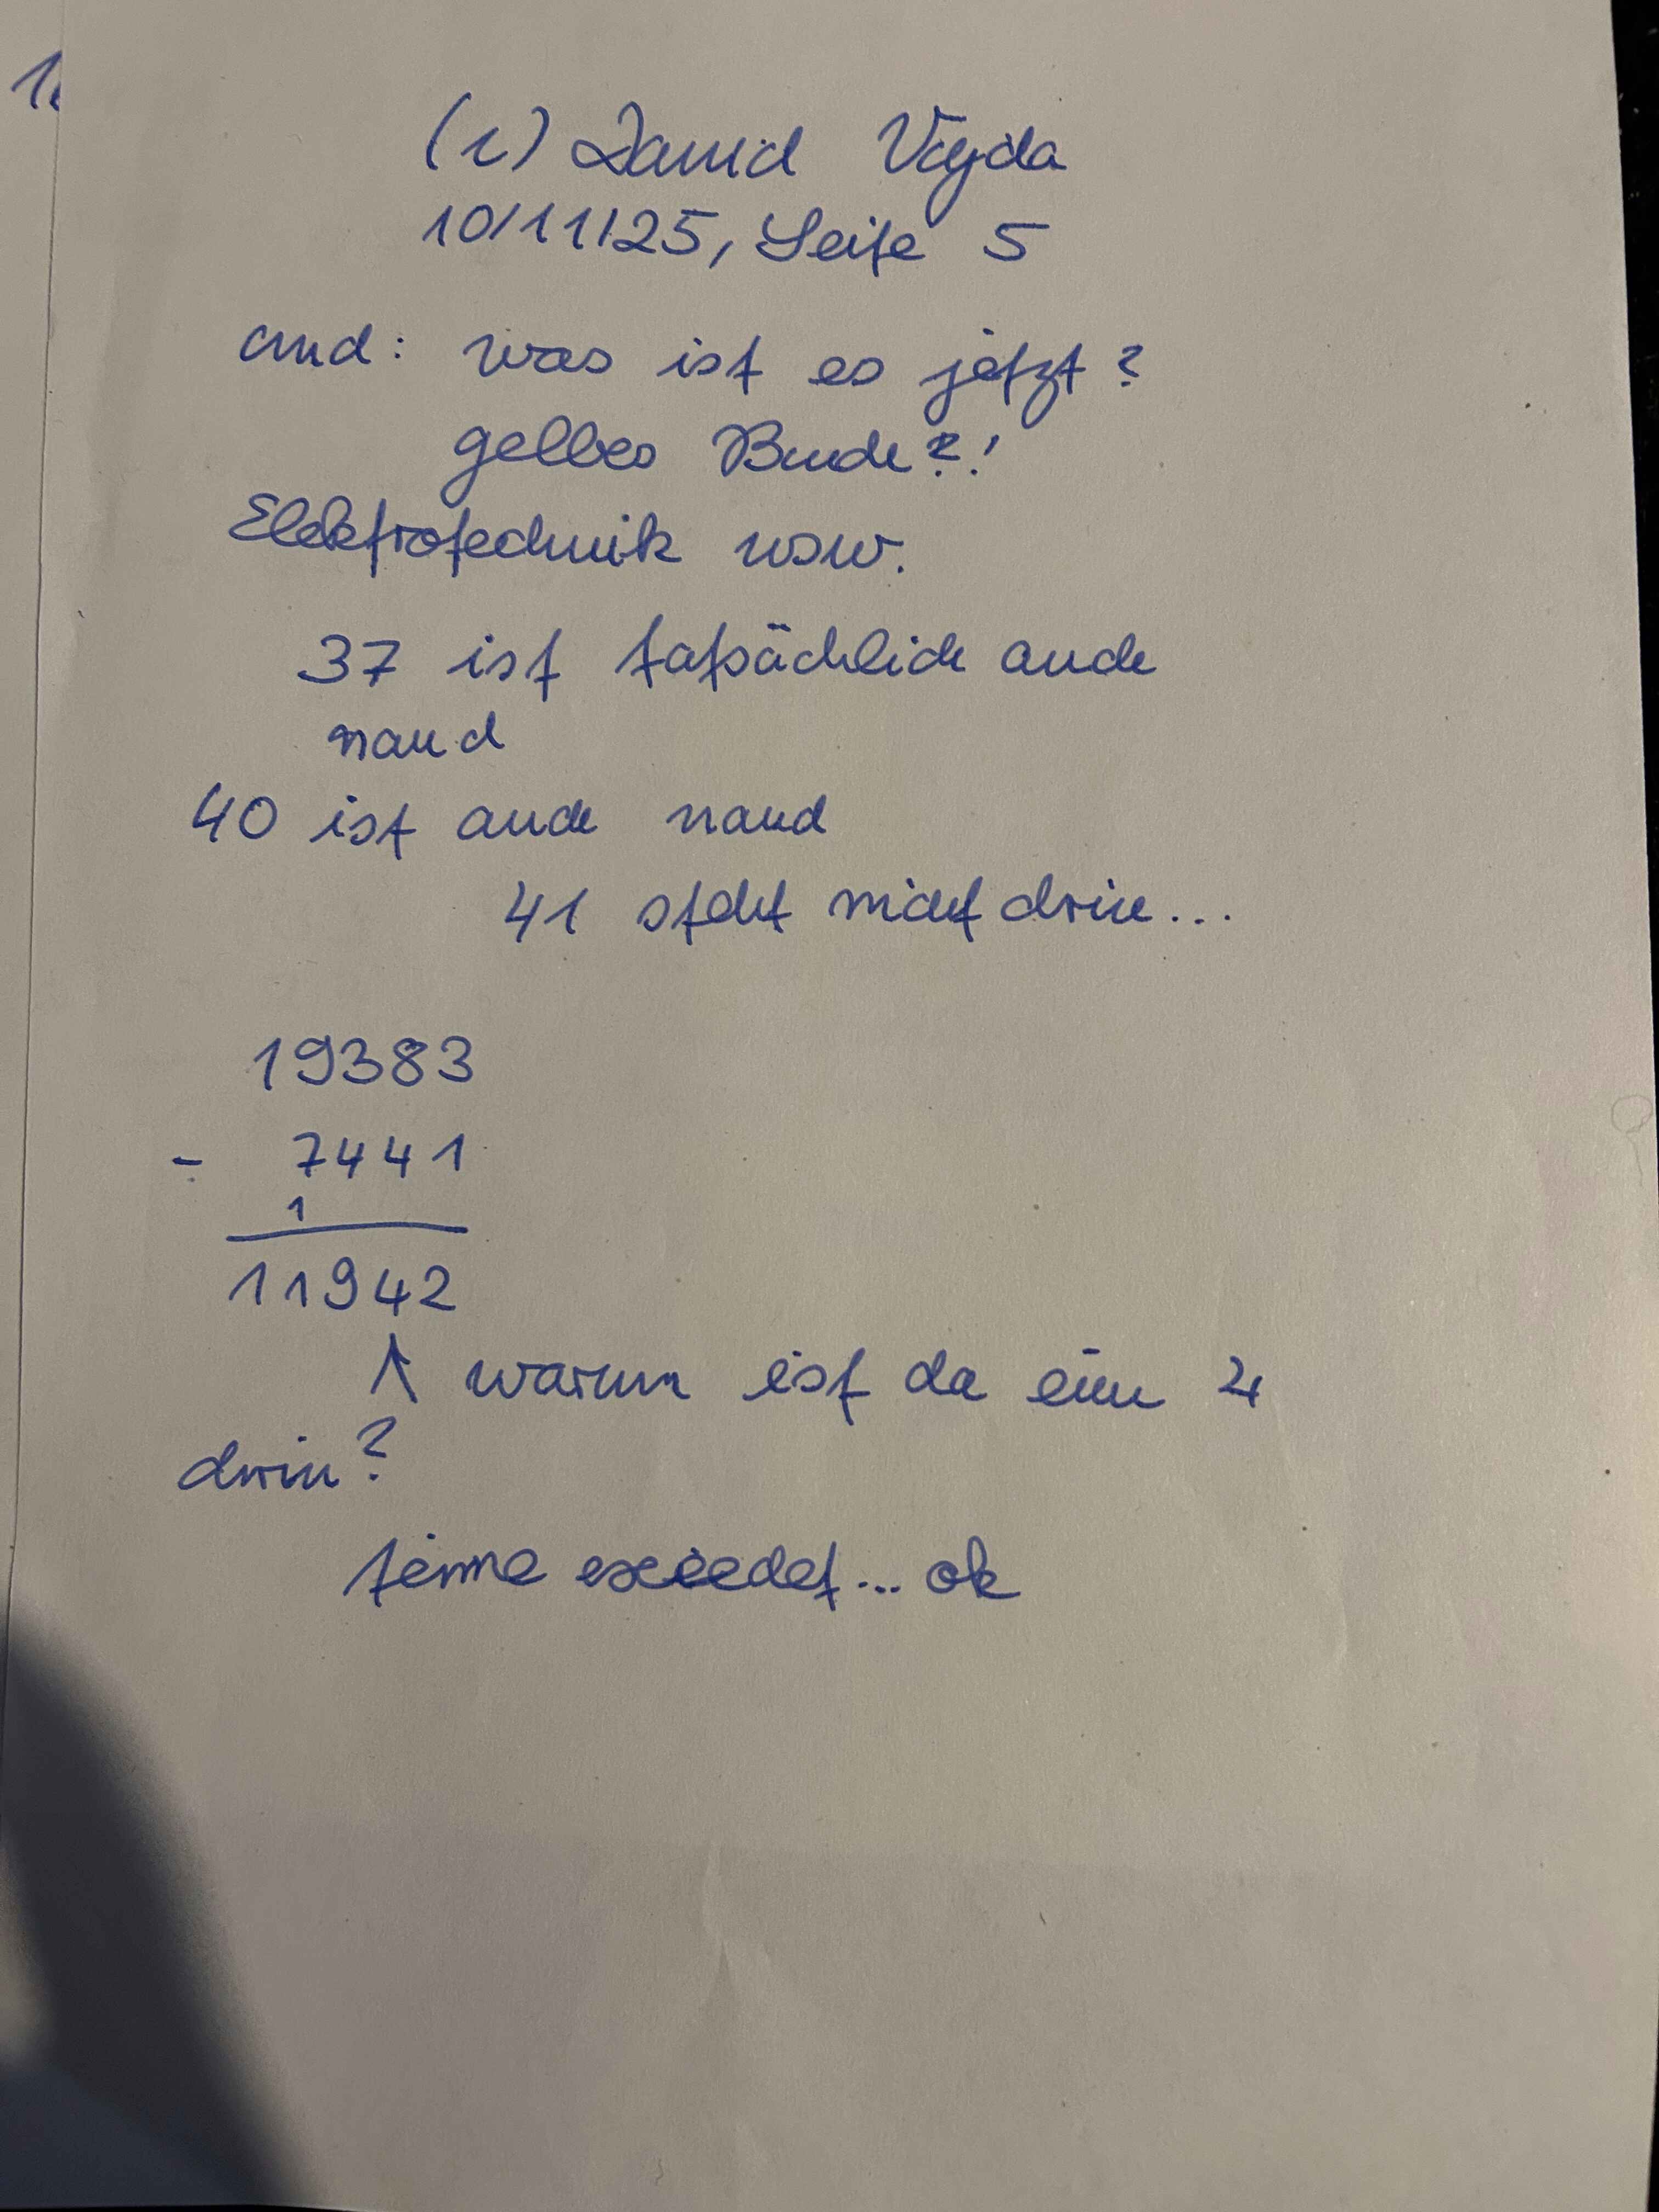 (c) David Vajda
10/11/25, Seite 5
and: was ist es jetzt?
gelbes Buch?!
Elektrotechnik usw.
37 ist tatsächlich auch
nand
40 ist auch nand
41 steht nicht drin...
19383
- 7441
1
11942
↑ warum ist da eine 4
drin?
time exceedet... ok